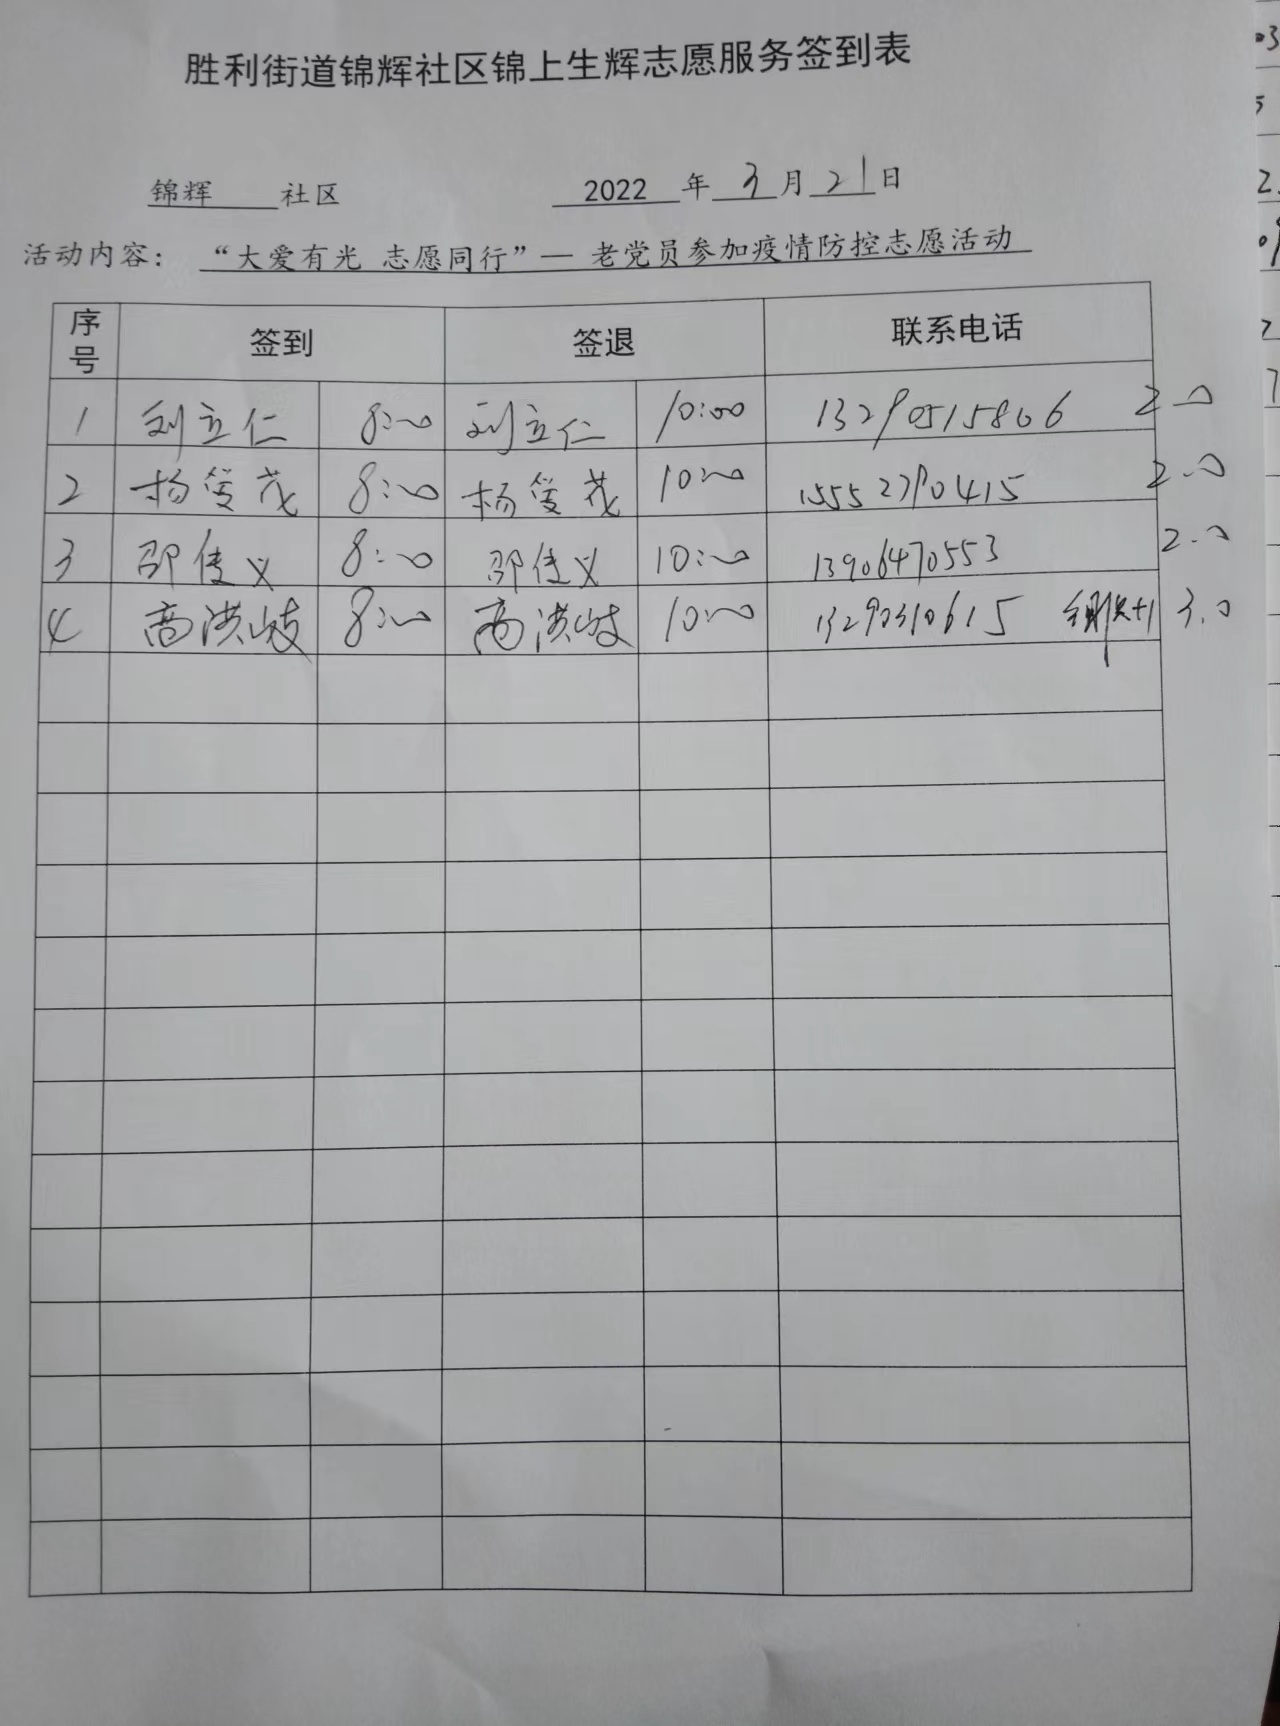 胜利街道锦辉社区锦上生辉志愿服务签到表
锦辉 社区 2022 年 3 月 21 日
活动内容： “大爱有光 志愿同行”— 老党员参加疫情防控志愿活动
序号 签到 签退 联系电话
1 刘立仁 8:00 刘立仁 10:00 13290515806 2.0
2 杨爱茂 8:00 杨爱茂 10:00 15552790415 2.0
3 邵佳义 8:00 邵佳义 10:00 13906470553 2.0
4 高洪岐 8:00 高洪岐 10:00 13290310615 3.0